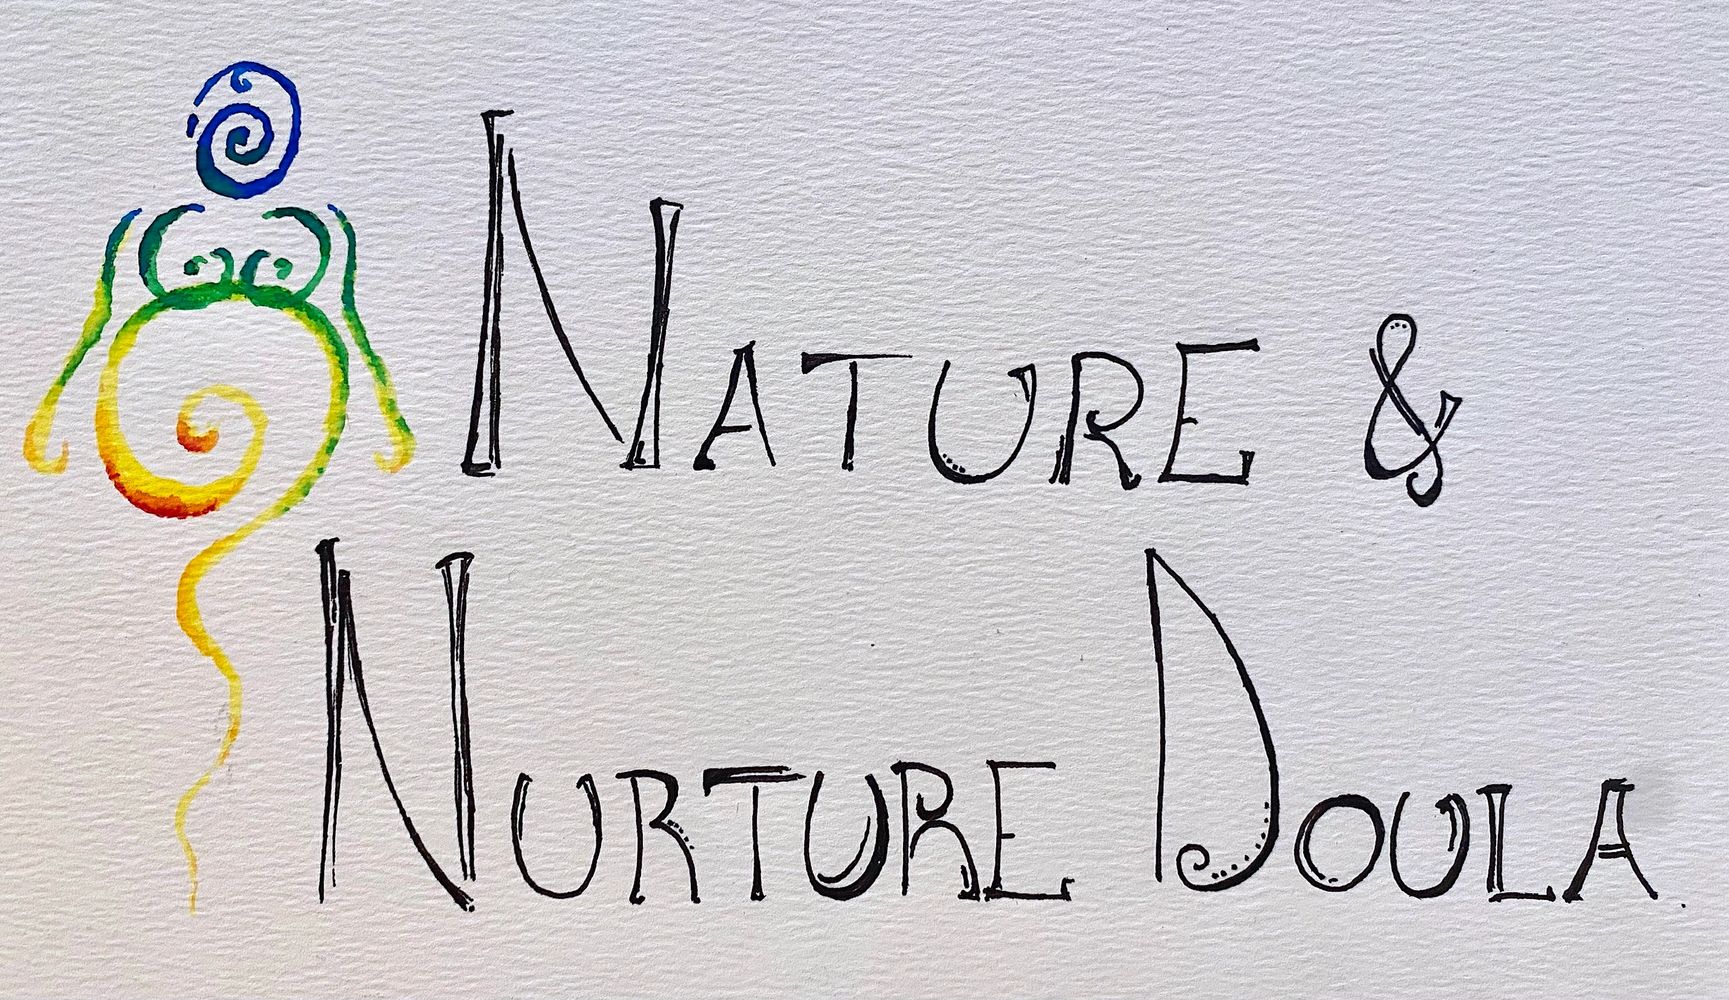 NATURE &
NURTURE DOULA